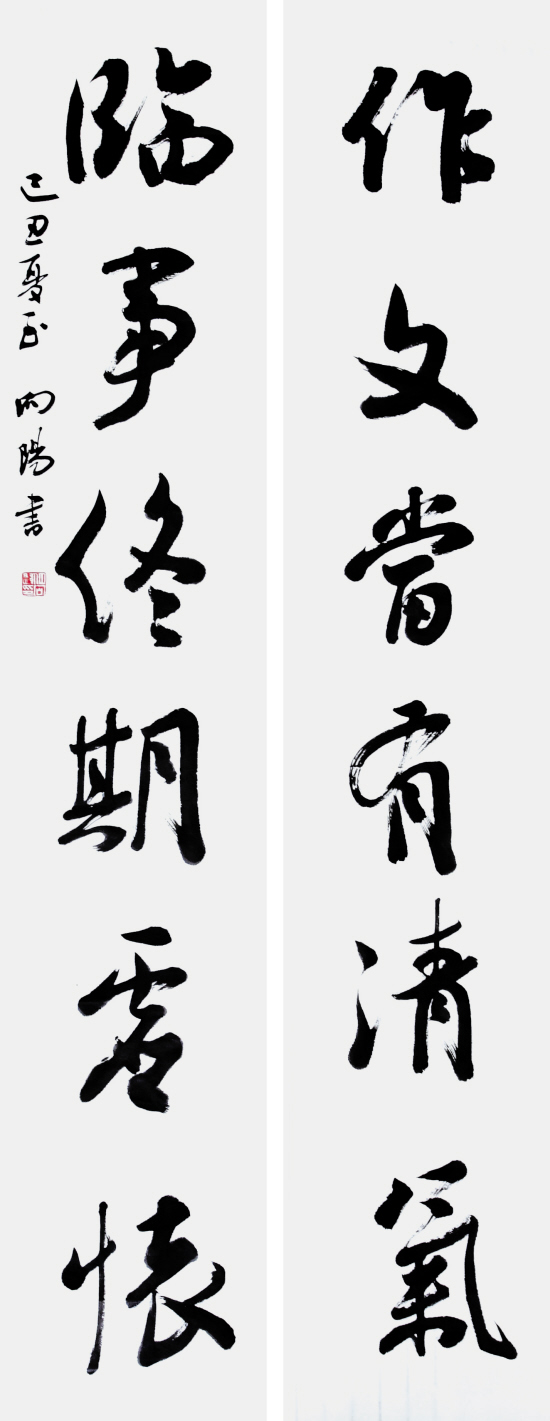 作文當有清氣
臨事終期虛懷
己丑夏至 向陽書